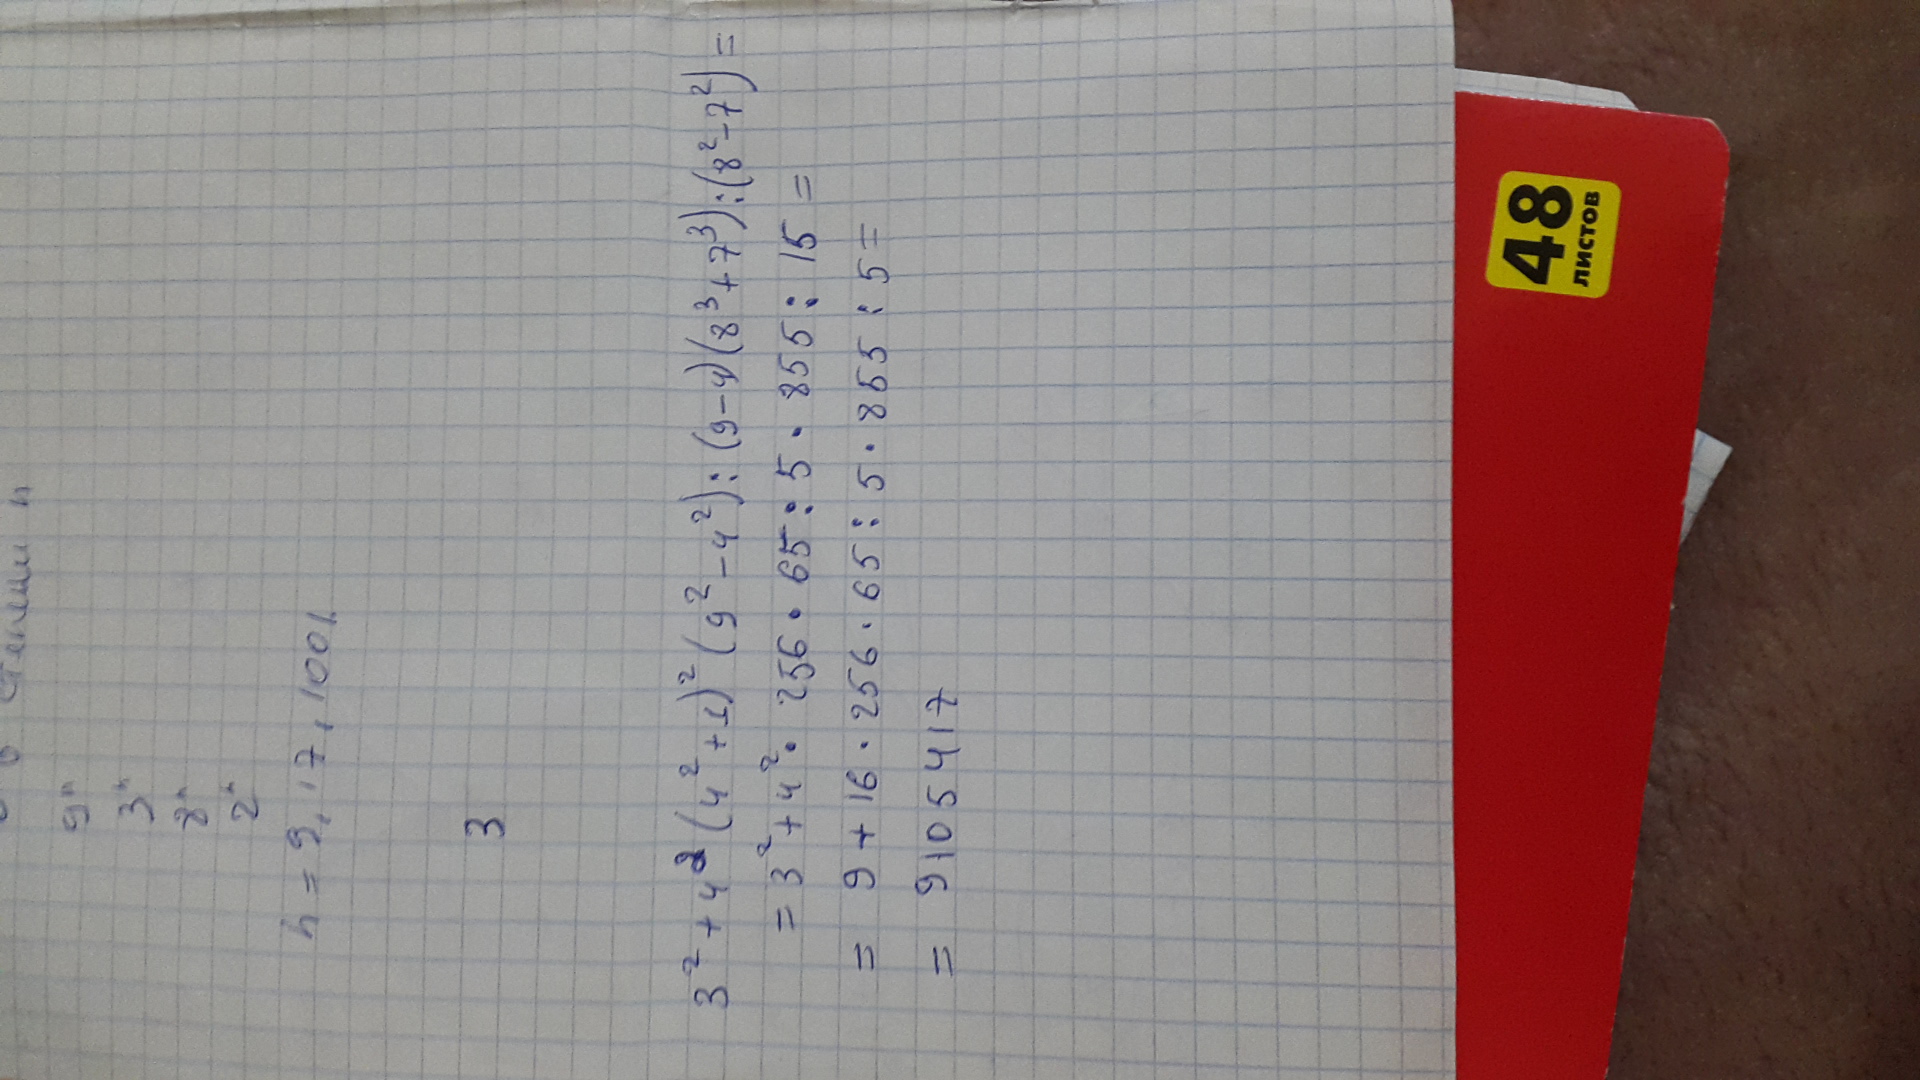 степени n
9ⁿ
3ⁿ
8ⁿ
2ⁿ
n = 9, 17, 1001.
3
3² + 4² (4² + 1)² (9² - 4²) : (9 - 4) (8³ + 7³) : (8² - 7²) =
= 3² + 4² · 256 · 65 : 5 · 855 : 15 =
= 9 + 16 · 256 · 65 : 5 · 855 : 5 =
= 9105417
48
ЛИСТОВ